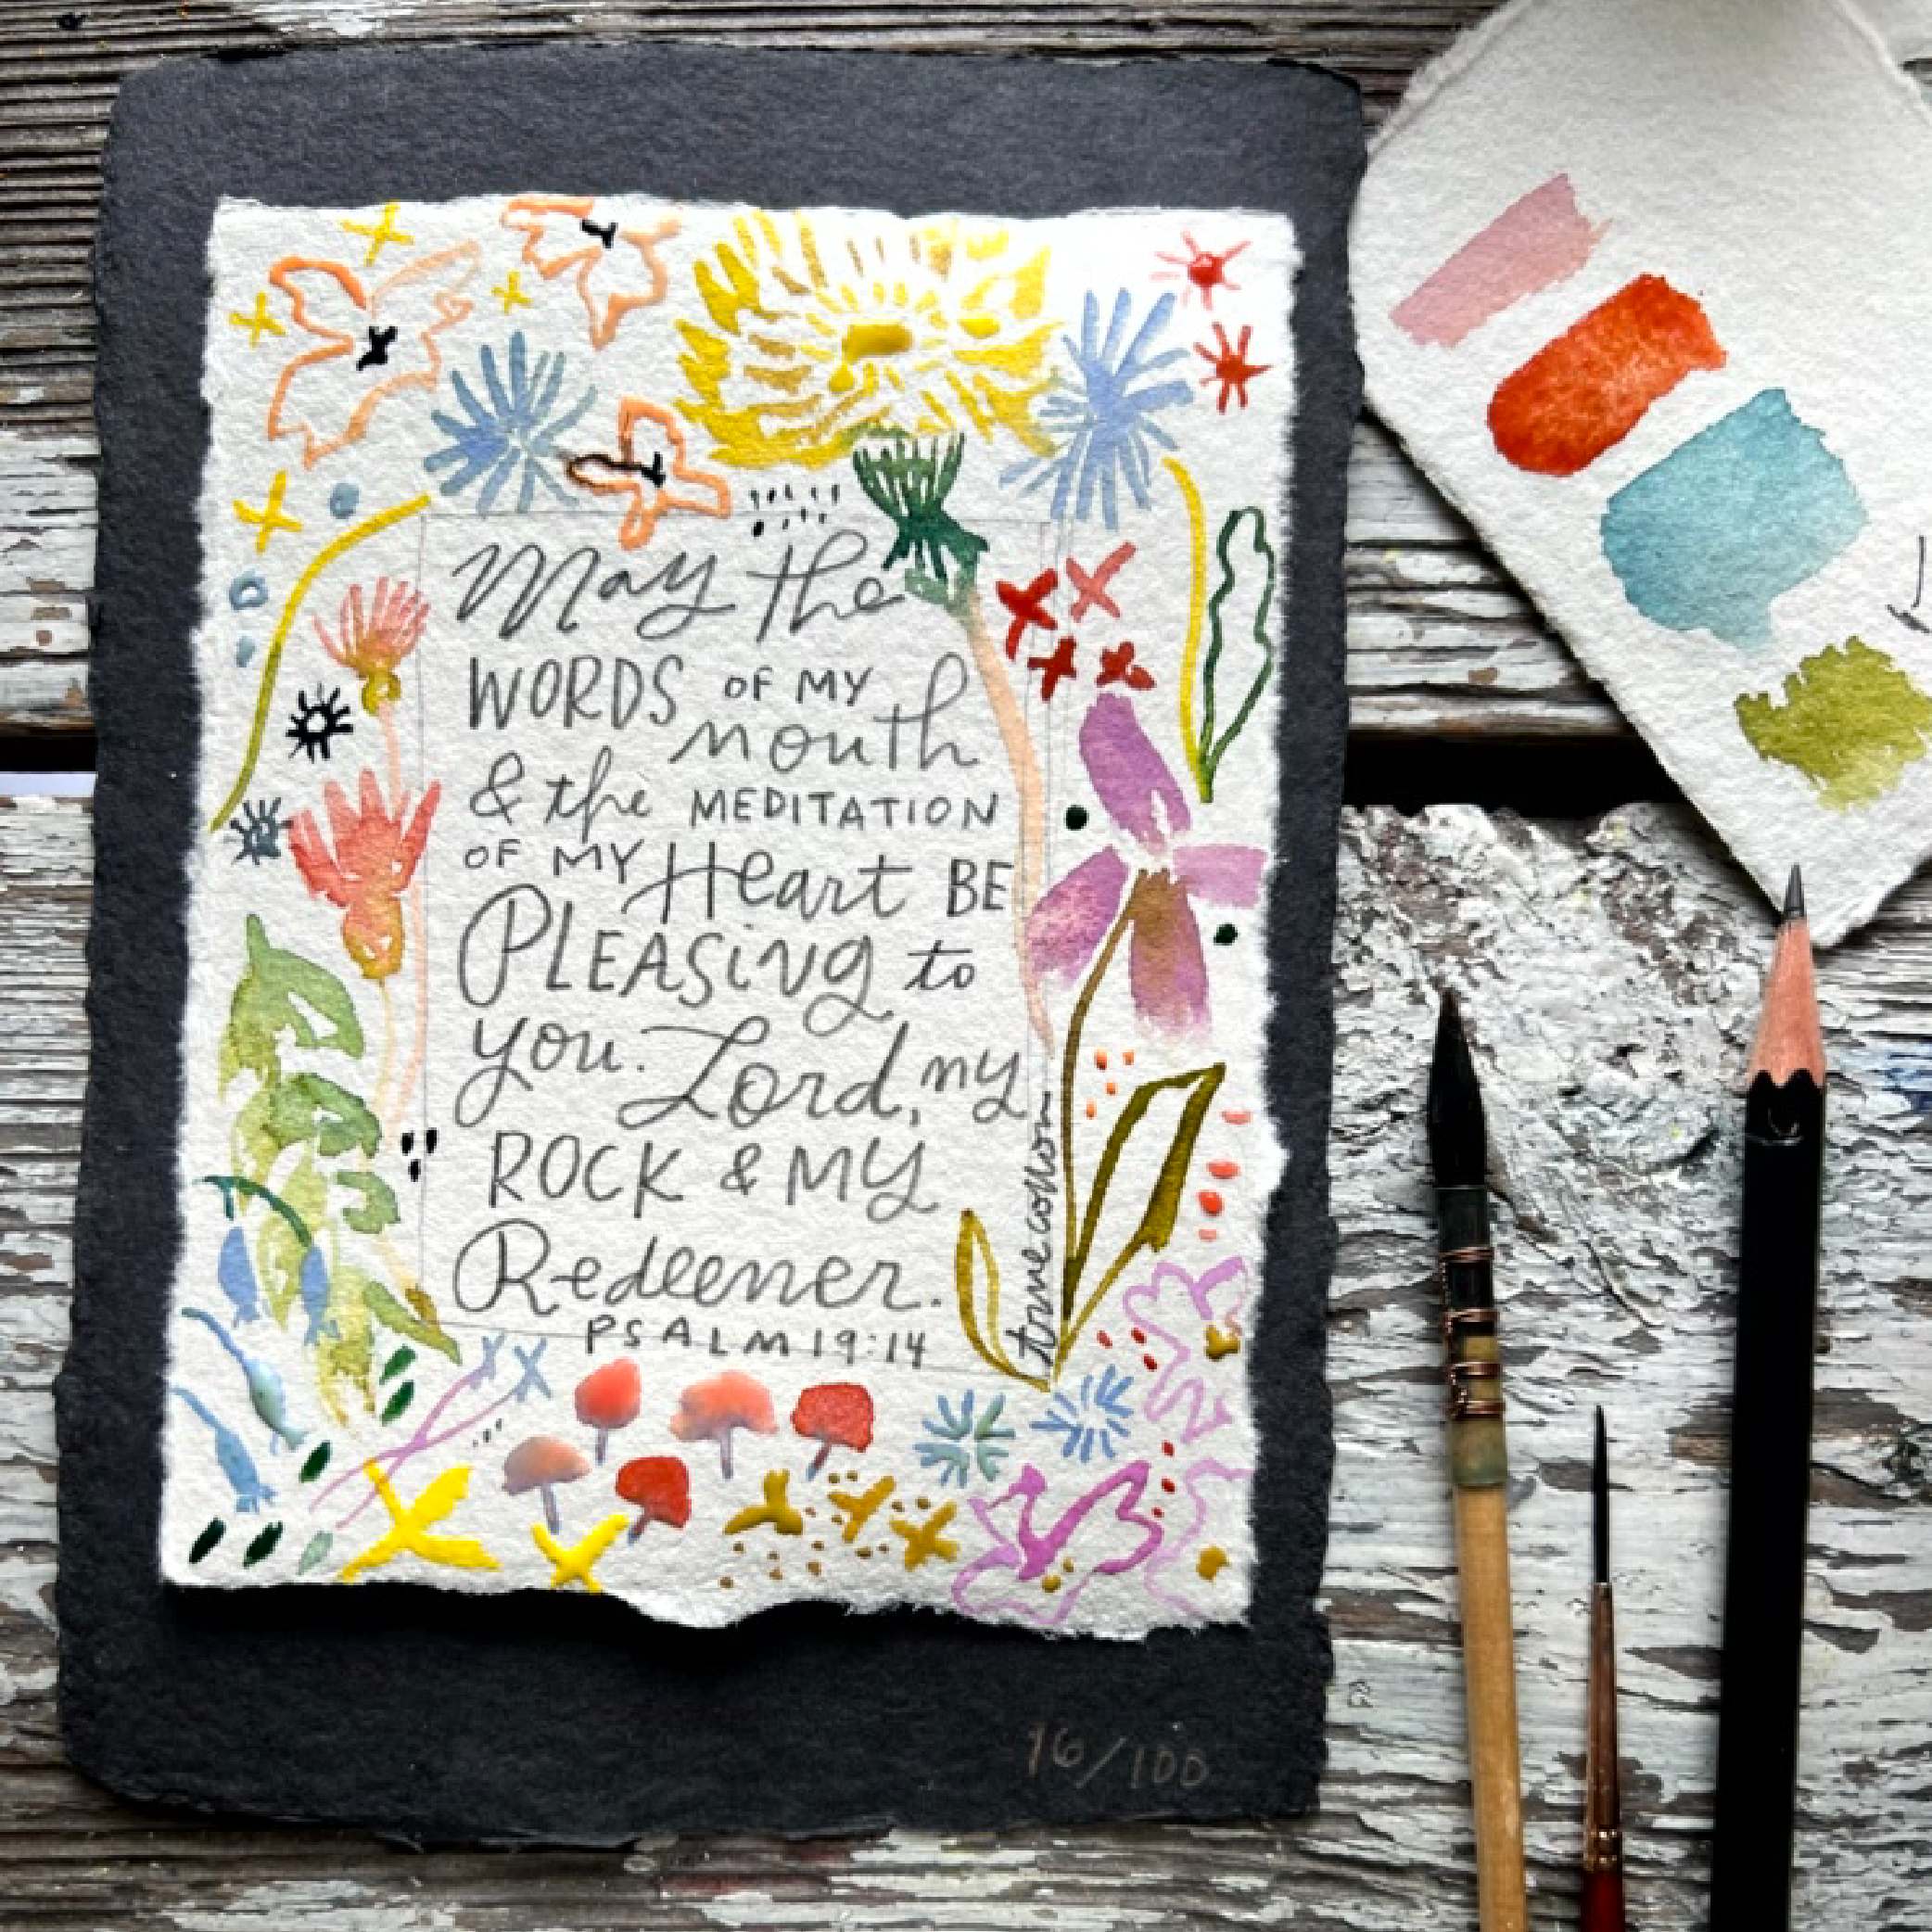 May the
WORDS OF MY
mouth
& the MEDITATION
OF MY Heart BE
PLEASiNg to
you. Lord, my
ROCK & MY
Redeemer.
PSALM 19:14
truecotton
16/100